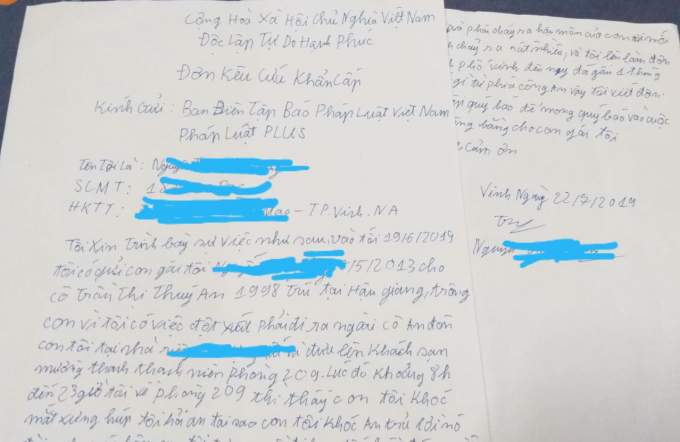 Cộng Hoà Xã Hội Chủ Nghĩa Việt Nam
Độc Lập Tự Do Hạnh Phúc
Đơn Kêu Cứu Khẩn Cấp
Kính Gửi: Ban Biên Tập Báo Pháp Luật Việt Nam
Pháp Luật PLUS
Tên Tôi Là: Nguy
SCMT: 18
HKTT: - TP.Vinh.NA
Tôi Xin Trình bày sự việc như sau, vào tối 19/6/2019
tôi có gửi con gái tôi /5/2013 cho
cô trần Thị Thuý An 1998 trú tại Hậu giang, trông
con vì tôi có việc đột xuất phải đi ra ngoài cô An đón
con tôi tại nhà và đưa lên Khách sạn
mường thanh thanh niên phòng 209. Lúc đó Khoảng 8h
đến 23 giờ tôi về phòng 209 thì thấy con tôi Khóc
mắt xưng húp tôi hỏi an tại sao con tôi Khóc An trả lời nó
và phía chảy ra hậu môn của con tôi mới
chảy ra rất nhiều, và tôi lên làm đơn
phố vinh đến nay đã gần 1 tháng
gì từ phía công An vậy tôi viết đơn
quý báo để mong quý báo vào cuộc
công bằng cho con gái tôi
cảm ơn
Vinh Ngày 22/7/2019
Nguyễn